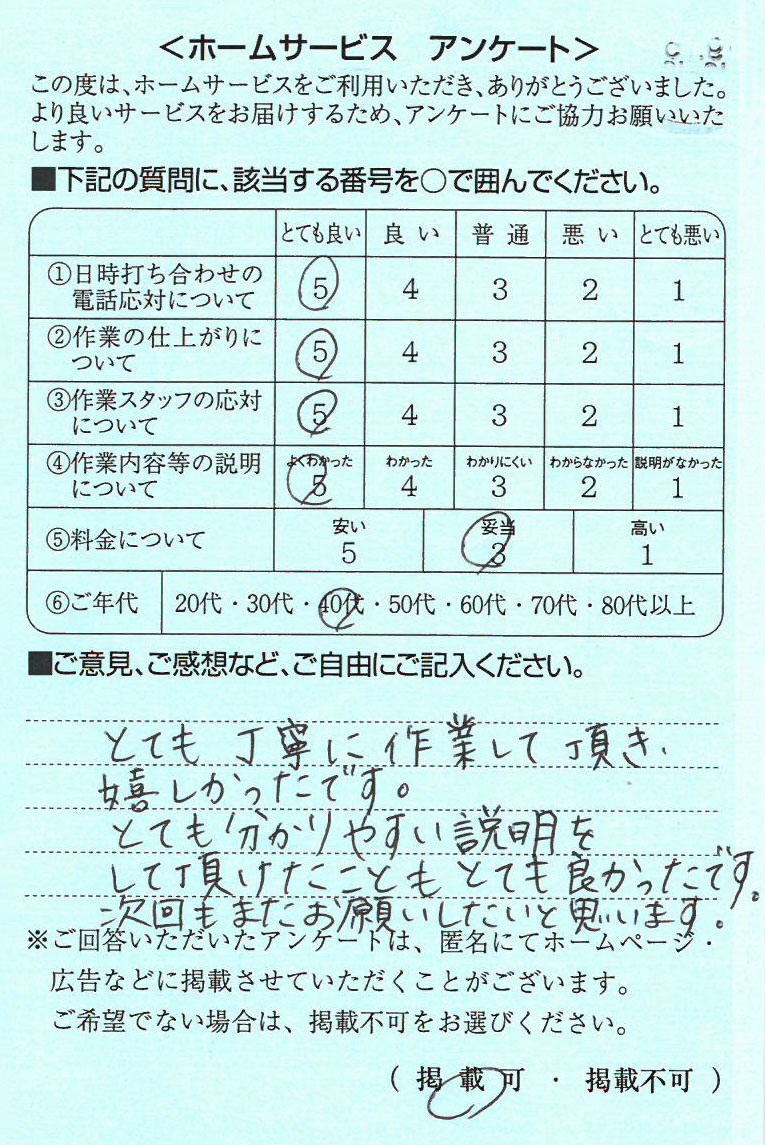 <ホームサービス アンケート>
この度は、ホームサービスをご利用いただき、ありがとうございました。
より良いサービスをお届けするため、アンケートにご協力お願いいた
します。
■下記の質問に、該当する番号を○で囲んでください。
とても良い 良い 普通 悪い とても悪い
①日時打ち合わせの
電話応対について
5 4 3 2 1
②作業の仕上がりに
ついて
5 4 3 2 1
③作業スタッフの応対
について
5 4 3 2 1
④作業内容等の説明
について
よくわかった わかった わかりにくい わからなかった 説明がなかった
5 4 3 2 1
⑤料金について
安い 妥当 高い
5 3 1
⑥ご年代 20代・30代・40代・50代・60代・70代・80代以上
■ご意見、ご感想など、ご自由にご記入ください。
とても丁寧に作業して頂き、
嬉しかったです。
とても分かりやすい説明を
して頂けたこともとても良かったです。
次回もまたお願いしたいと思います。
※ご回答いただいたアンケートは、匿名にてホームページ・
広告などに掲載させていただくことがございます。
ご希望でない場合は、掲載不可をお選びください。
(掲載可・掲載不可)